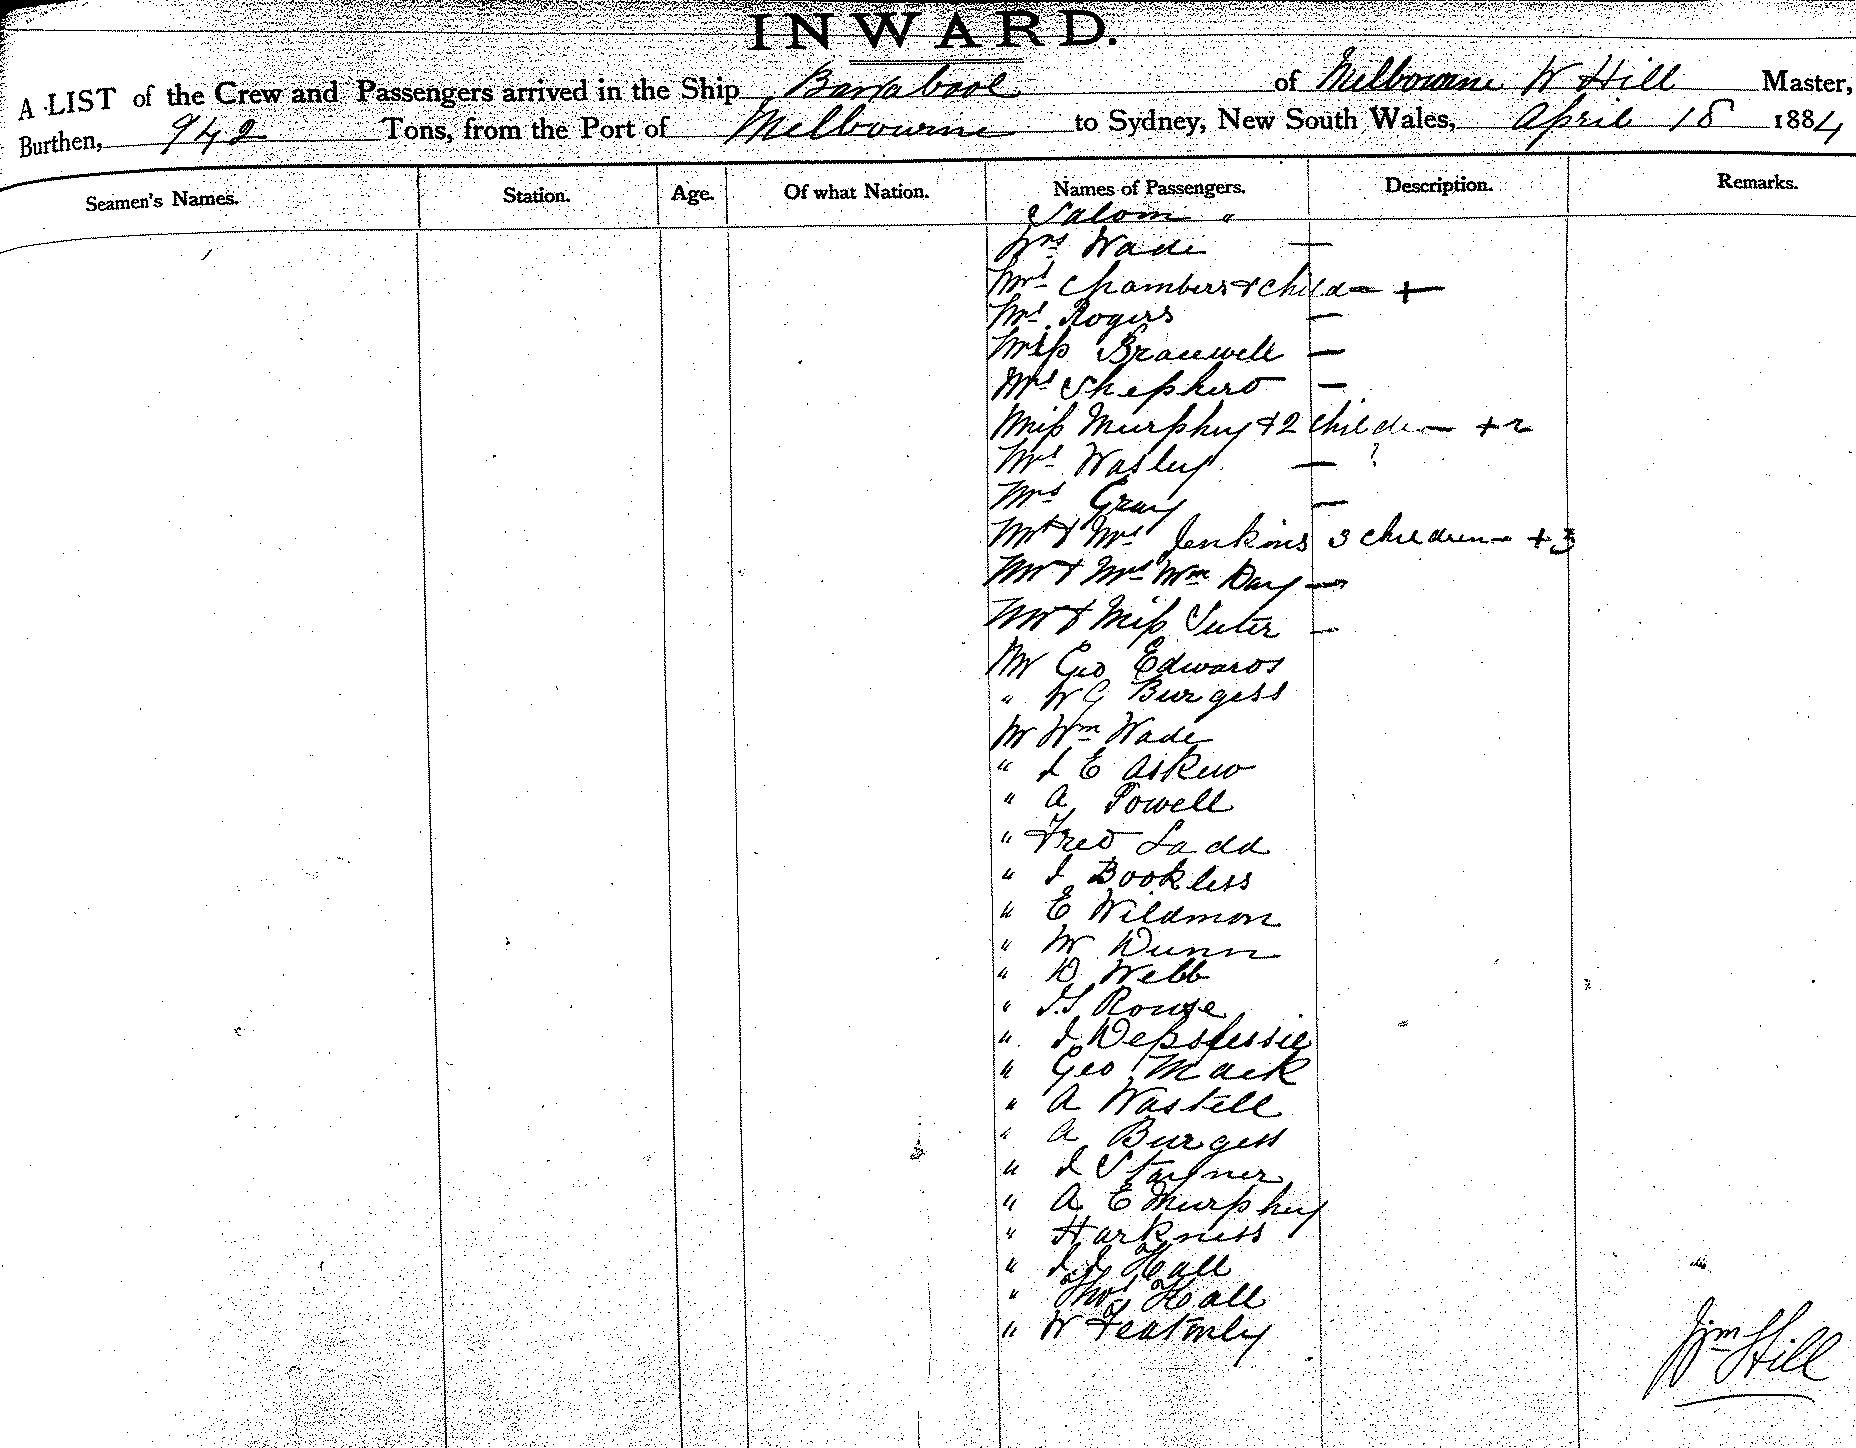 INWARD.
A LIST of the Crew and Passengers arrived in the Ship Barrabool of Melbourne W Hill Master,
Burthen, 942 Tons, from the Port of Melbourne to Sydney, New South Wales, April 18 1884
Seamen's Names. Station. Age. Of what Nation. Names of Passengers. Description. Remarks.
Saloon "
Mrs Wade —
Mrs Chambers & child — +
Mrs Rogers —
Miss Bramwell —
Mrs Shepherd —
Miss Murphy & 2 children — + 2
Mrs Wasley — ?
Mrs Gray —
Mr & Mrs Jenkins 3 children — + 3
Mr & Mrs Wm Day —
Mr & Miss Suter —
Mr Geo Edwards
" W G Burgess
Mr Wm Wade
" J E Askew
" A Powell
" Fred Ladd
" J Bookless
" E Wildmon
" W Dunn
" D Webb
" J.S Rouse
" J
" Geo Mack
" A Wastell
" A Burgess
" J Stayner
" A E Murphy
" Harkness
" J J Hall
" Thos Hall
" W
Wm Hill